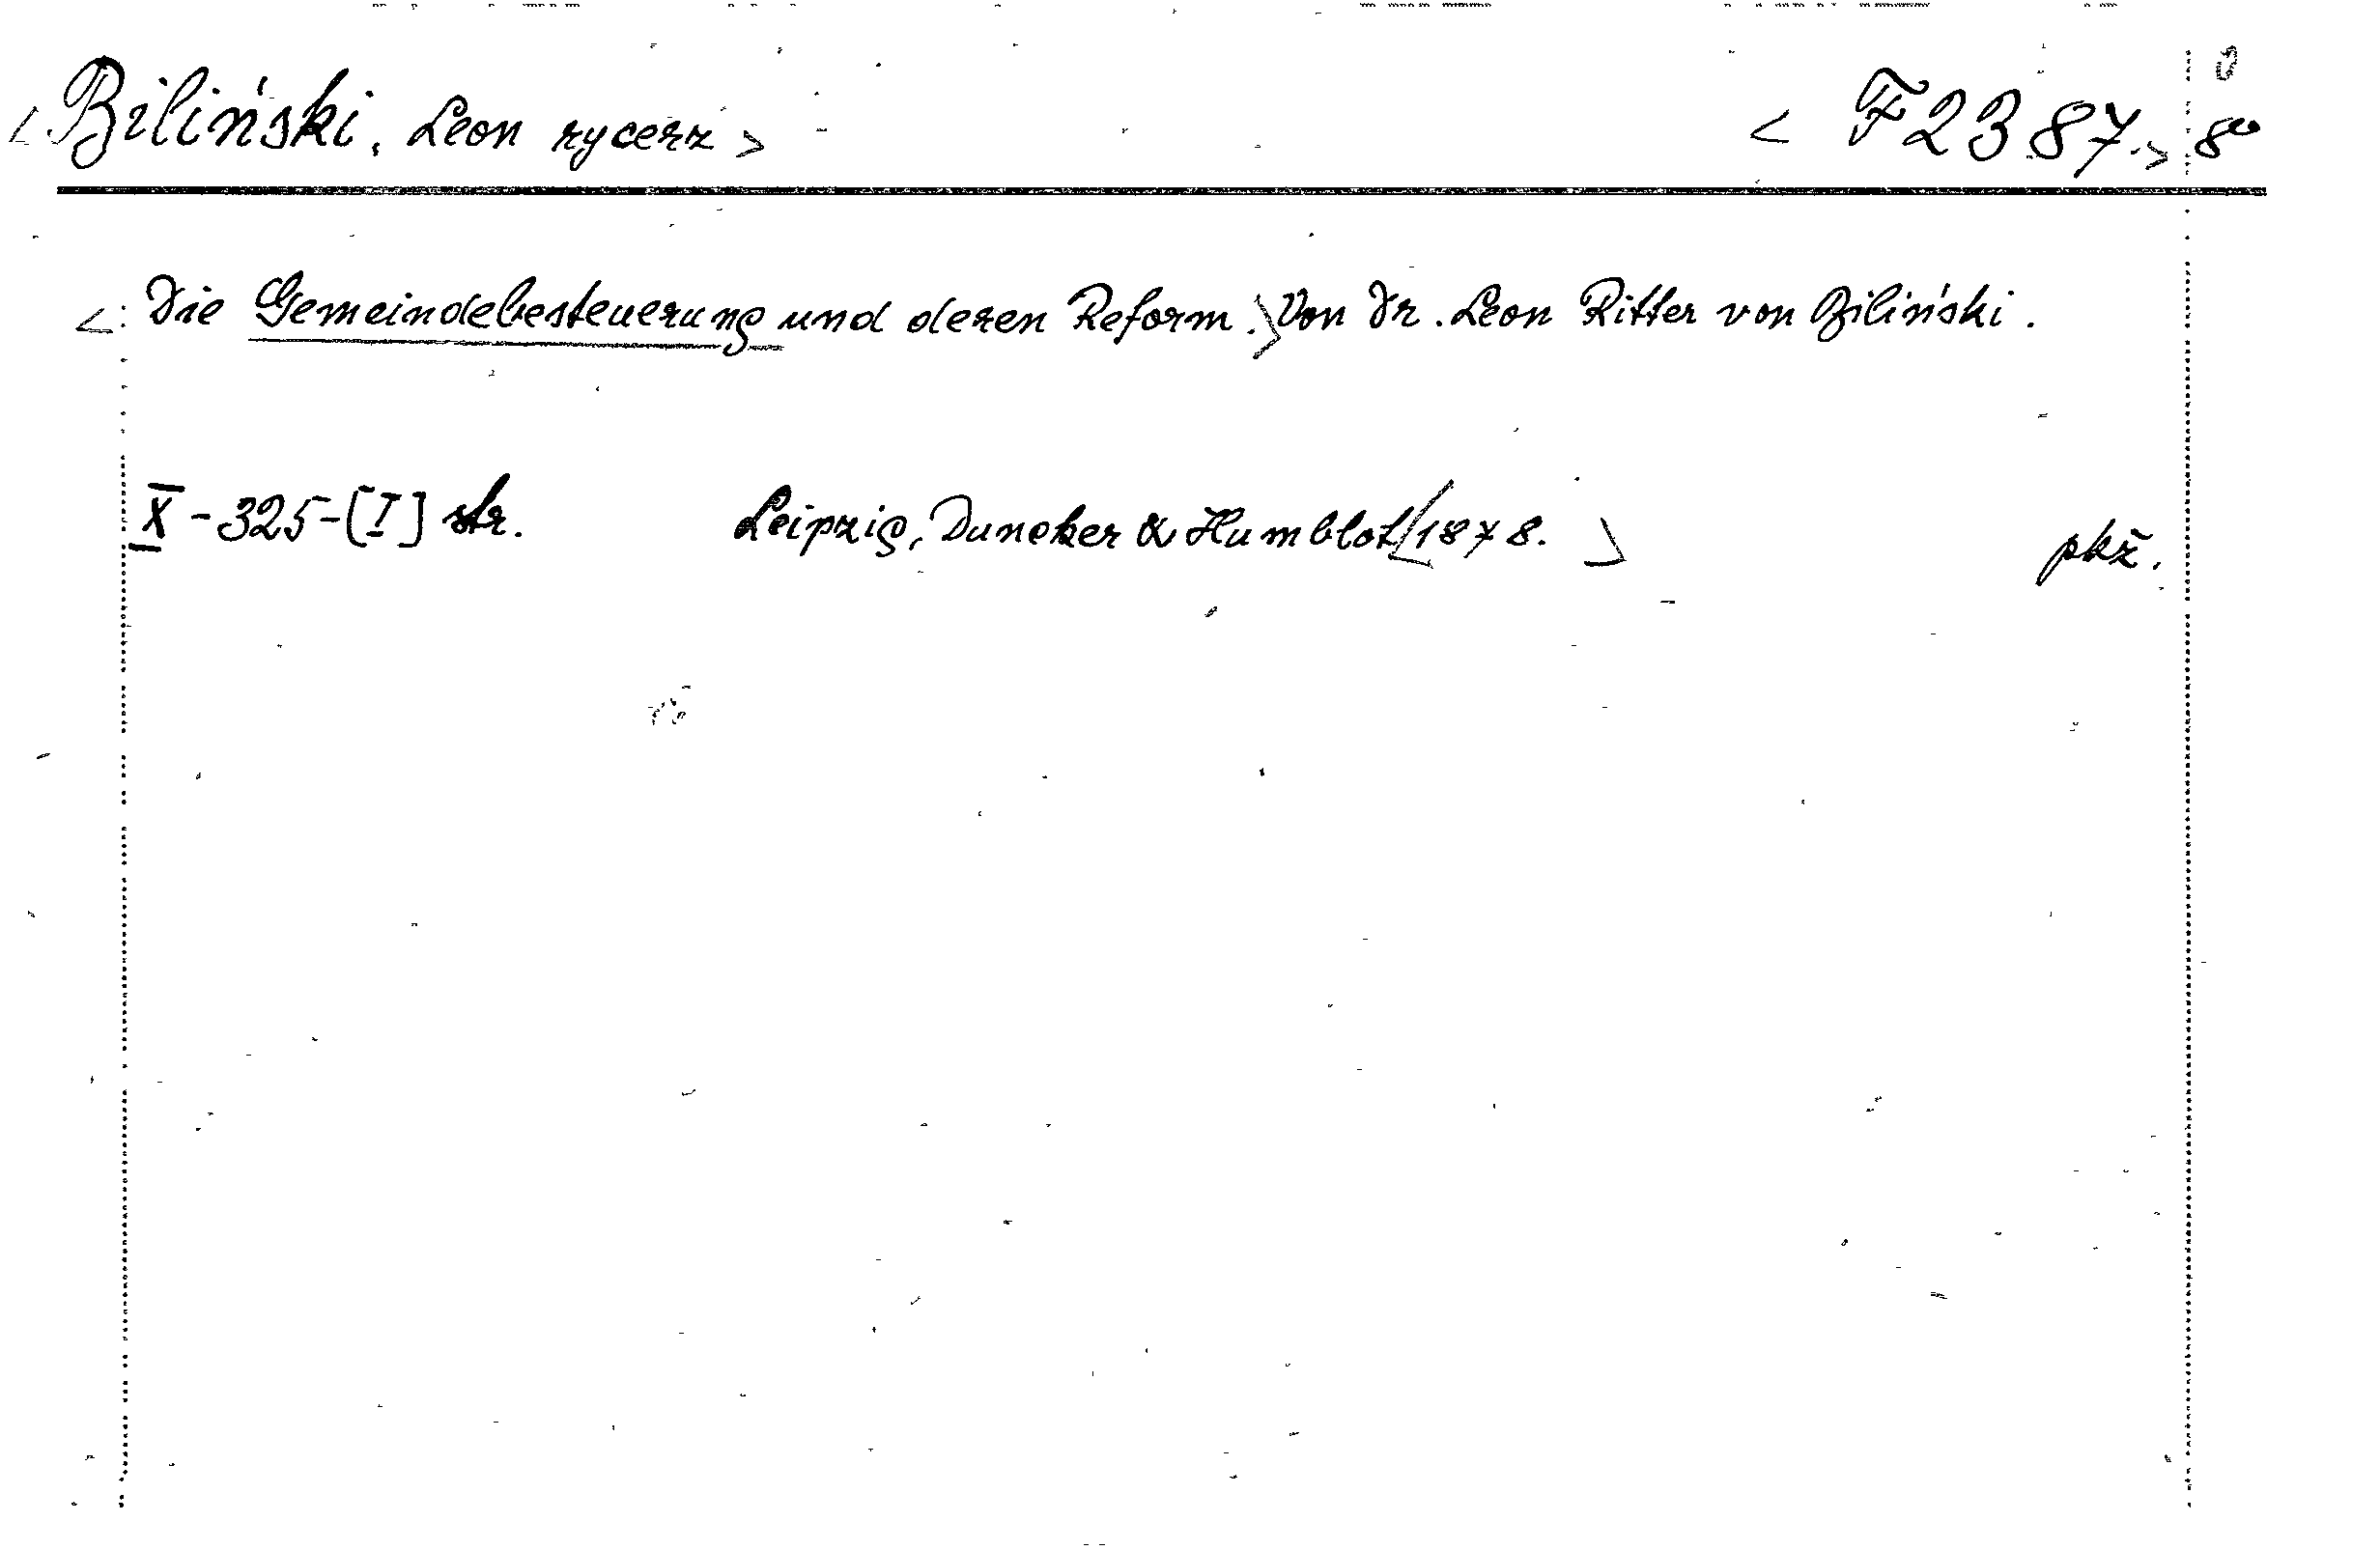 <Biliński, Leon rycerz> <F2387.> 8º
<Die Gemeindebesteuerung und deren Reform.> Von Dr. Leon Ritter von Biliński.
X-325-[I] str. Leipzig, Duncker & Humblot <1878.> pkž.